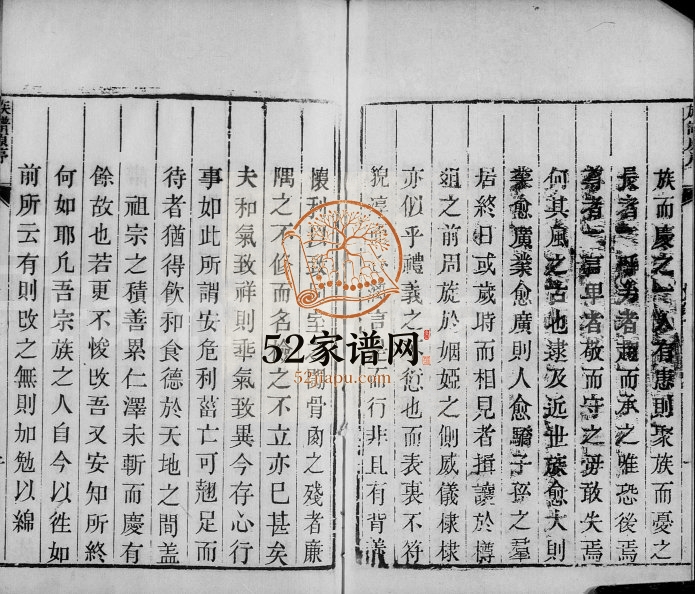 族而慶之一人有患則聚族而憂之
長者一呼男者趨而承之雅恐後焉
尊者一言卑者敬而守之毋敢失焉
何其風之古也逮及近世族愈大則
業愈廣業愈廣則人愈驕子孫之羣
居終日或歲時而相見者揖讓於樽
俎之前周旋於姻婭之側威儀棣棣
亦似乎禮義之行也而表裏不符
貌 言 行非且有背義
懷利 致 室 骨肉之殘者廉
隅之不修而名 之不立亦已甚矣
夫和氣致祥則乖氣致異今存心行
事如此所謂安危利菑亡可翹足而
待者猶得飲和食德於天地之間蓋
祖宗之積善累仁澤未斬而慶有
餘故也若更不悛改吾又安知所終
何如耶凡吾宗族之人自今以徃如
前所云有則改之無則加勉以綿
族譜 序
52家谱网
52jiapu.com